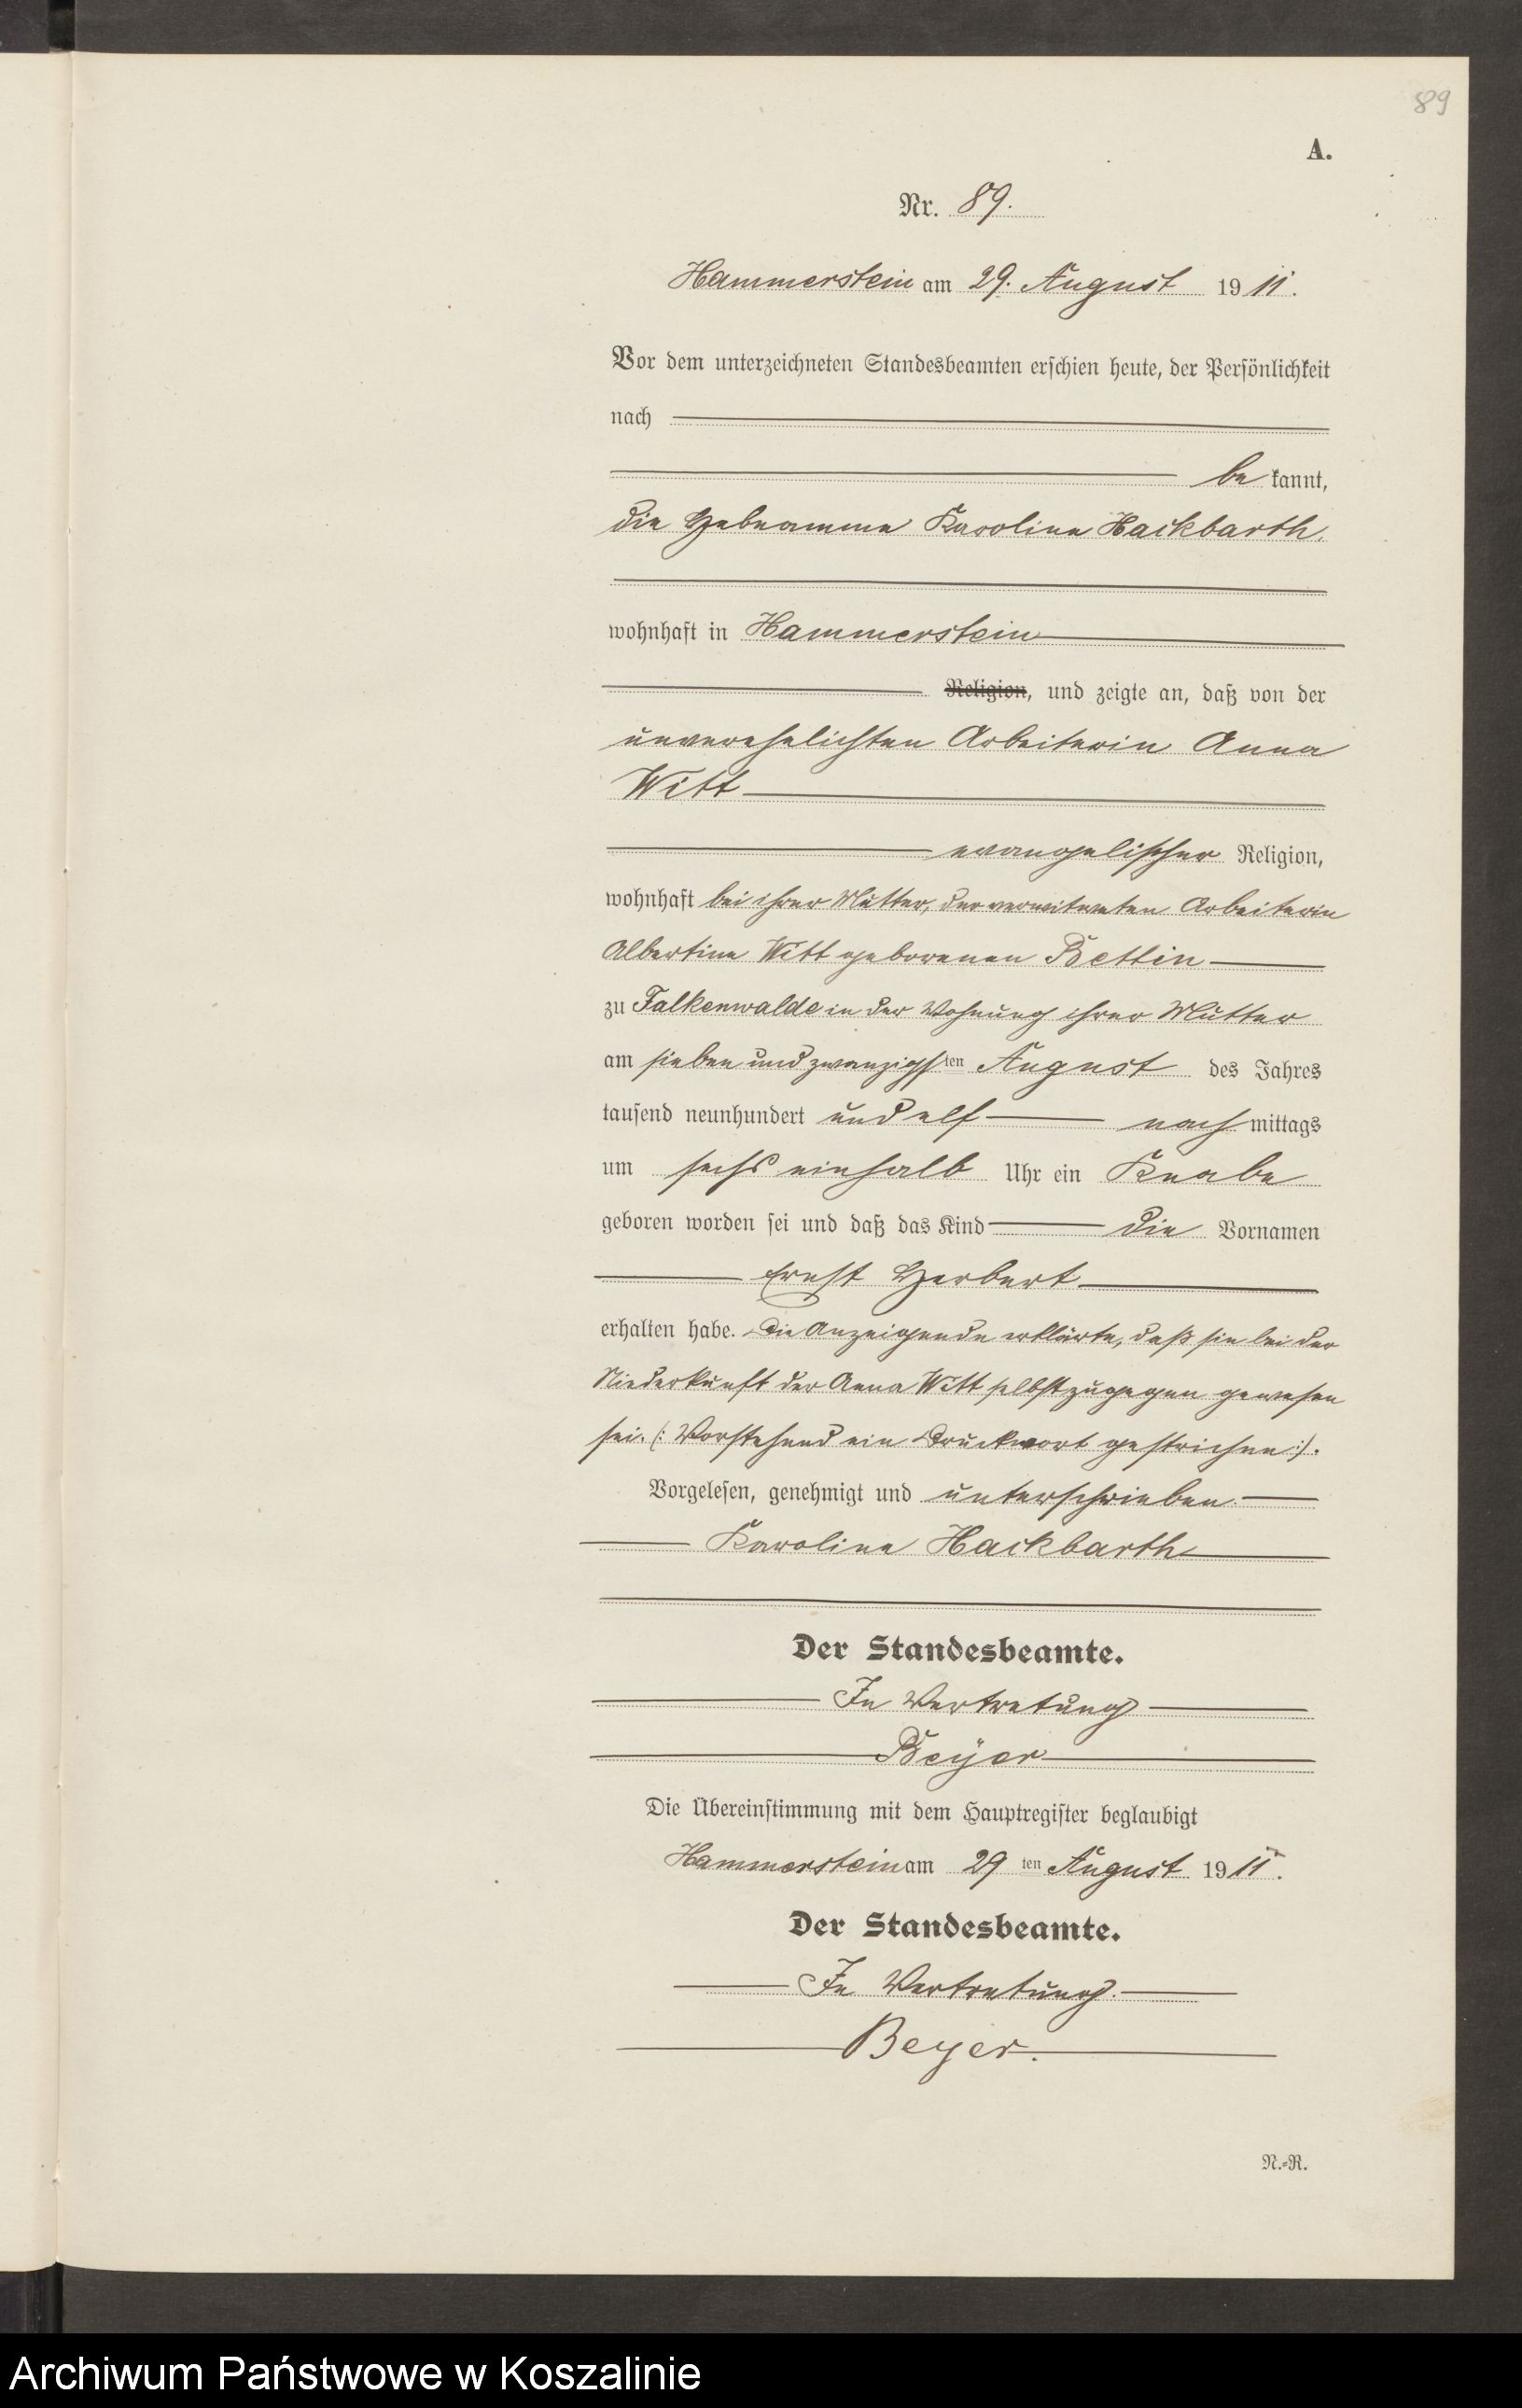 89
A.
Nr. 89.
Hammerstein am 29. August 19 11.
Vor dem unterzeichneten Standesbeamten erschien heute, der Persönlichkeit
nach
be kannt,
die Hebeamme Karoline Hackbarth,
wohnhaft in Hammerstein
Religion, und zeigte an, daß von der
unverehelichten Arbeiterin Anna
Witt
evangelischer Religion,
wohnhaft bei ihrer Mutter, der verwitweten Arbeiterin
Albertine Witt geborenen Bettin
zu Falkenwalde in der Wohnung ihrer Mutter
am sieben und zwanzigsten August des Jahres
tausend neunhundert und elf nachmittags
um sechs einhalb Uhr ein Knabe
geboren worden sei und daß das Kind die Vornamen
Ernst Herbert
erhalten habe. Die Anzeigende erklärte, daß sie bei der
Niederkunft der Anna Witt selbst zugegen gewesen
sei. (: Vorstehend ein Druckwort gestrichen :).
Vorgelesen, genehmigt und unterschrieben.
Karoline Hackbarth
Der Standesbeamte.
In Vertretung
Beÿer
Die Übereinstimmung mit dem Hauptregister beglaubigt
Hammerstein am 29 ten August 19 11.
Der Standesbeamte.
In Vertretung.
Beyer.
N.=R.
Archiwum Państwowe w Koszalinie